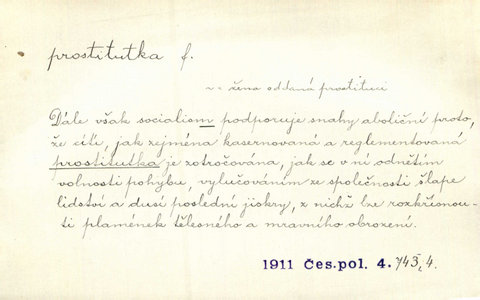 prostitutka f.
v = žena oddaná prostituci
Dále však socialism podporuje snahy aboliční proto,
že cítí, jak zejména kasernovaná a reglementovaná
prostitutka je zotročována, jak se v ní odnětím
volnosti pohybu, vylučováním ze společnosti šlape
lidství a dusí poslední jiskry, z nichž lze rozkřesnou-
ti plamének tělesného a mravního obrození.
1911 Čes. pol. 4. 743, 4.